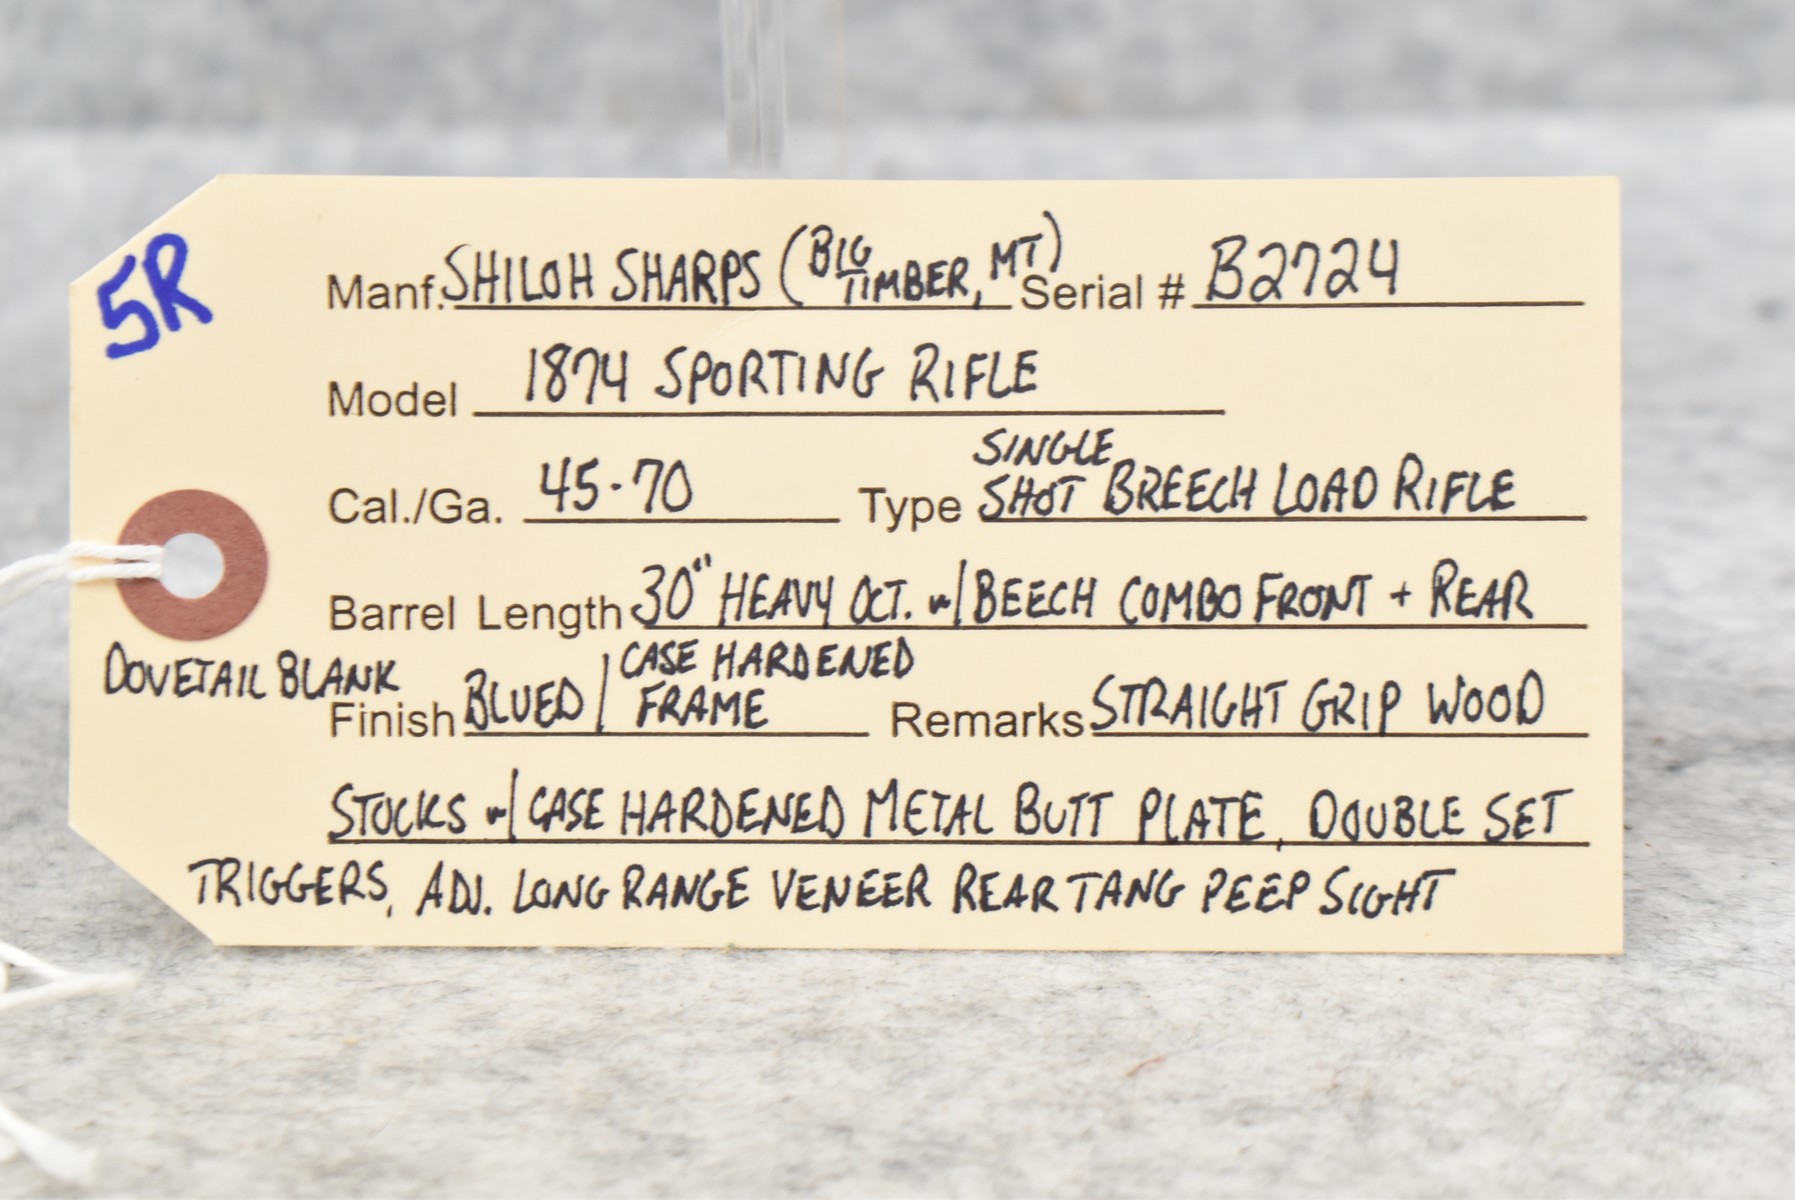 5R
Manf. SHILOH SHARPS (BIG TIMBER, MT) Serial # B2724
Model 1874 SPORTING RIFLE
Cal./Ga. 45-70 Type SINGLE SHOT BREECH LOAD RIFLE
Barrel Length 30" HEAVY OCT. w/ BEECH COMBO FRONT + REAR
DOVETAIL BLANK
Finish BLUED / CASE HARDENED FRAME Remarks STRAIGHT GRIP WOOD
STOCKS w/ CASE HARDENED METAL BUTT PLATE, DOUBLE SET
TRIGGERS, ADJ. LONG RANGE VENEER REAR TANG PEEP SIGHT